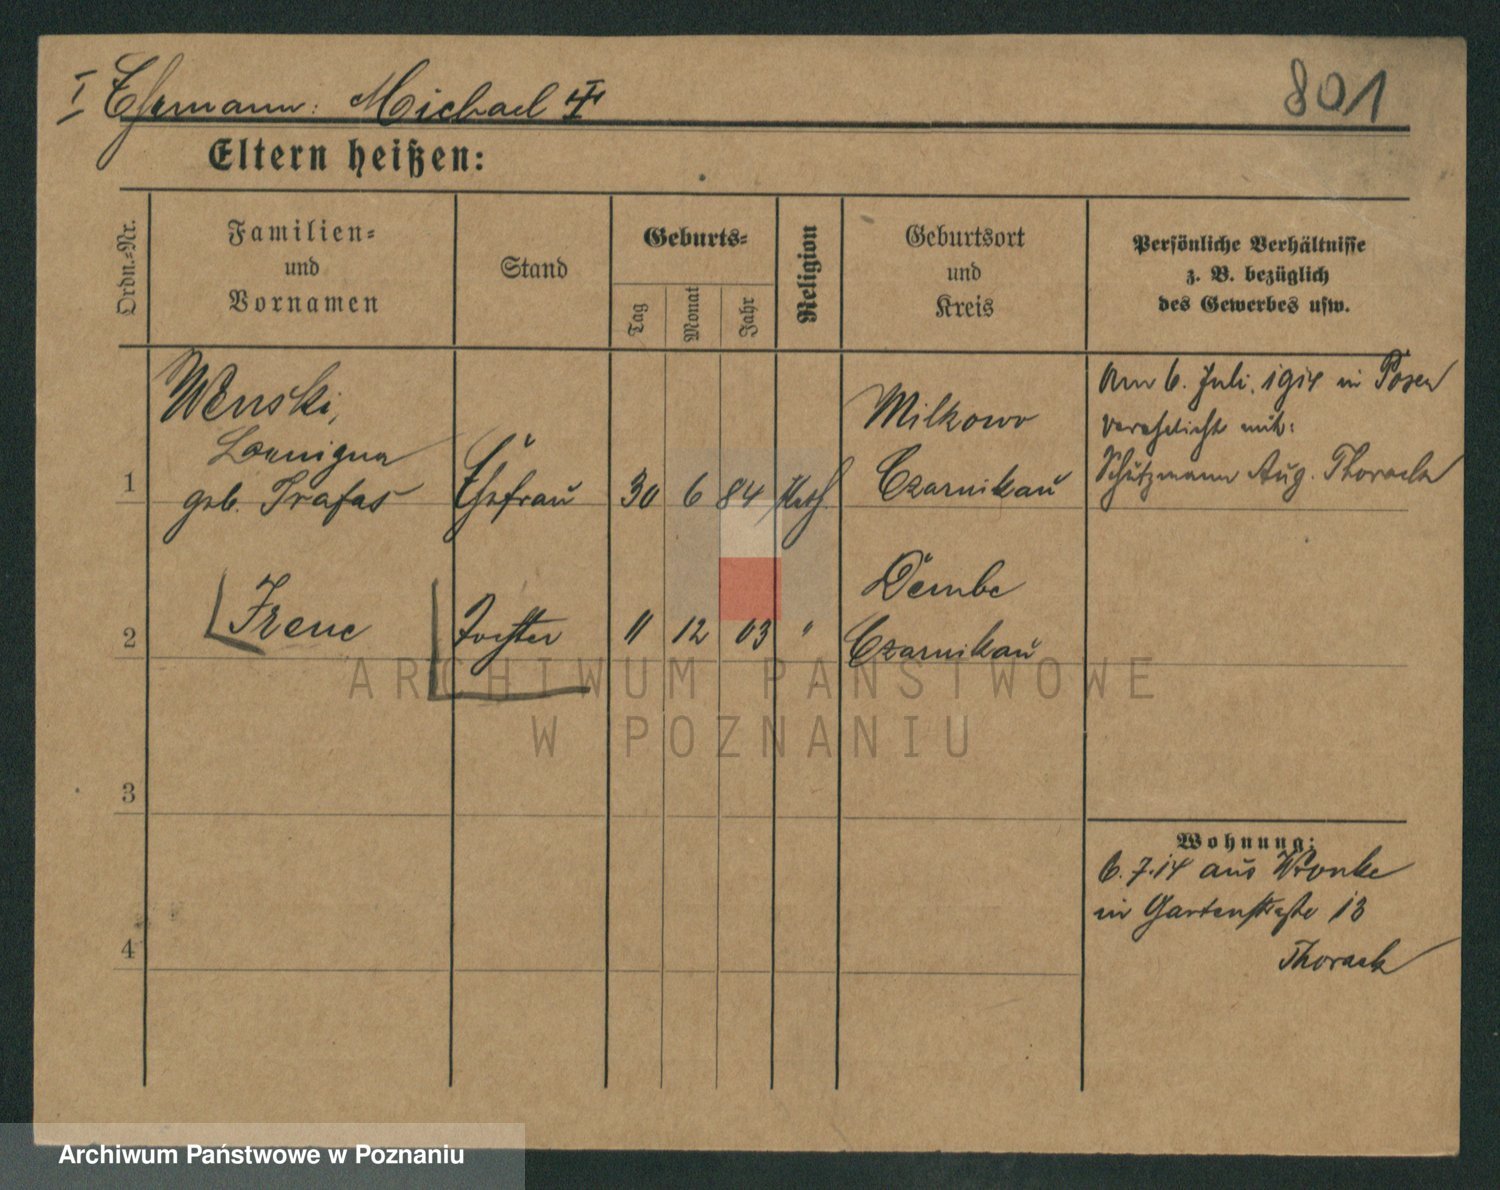 I Ehemann: Michael ‡
801
Eltern heißen:
Ordn.-Nr.
Familien- und Vornamen
Stand
Geburts-
Tag
Monat
Jahr
Religion
Geburtsort und Kreis
Persönliche Verhältnisse
z. B. bezüglich
des Gewerbes usw.
Wenski,
geb. Trafas
1
Ehefrau
30 6 84 Kath.
Milkowo
Czarnikau
Am 6. Juli 1914 in Posen
verehelicht mit:
Schutzmann Aug. Thorack
2
Irene
Tochter
11 12 03 "
Dembe
Czarnikau
3
4
Wohnung:
6.7.14 aus Wronke
in Gartenstraße 13
Thorack
ARCHIWUM PAŃSTWOWE
W POZNANIU
Archiwum Państwowe w Poznaniu